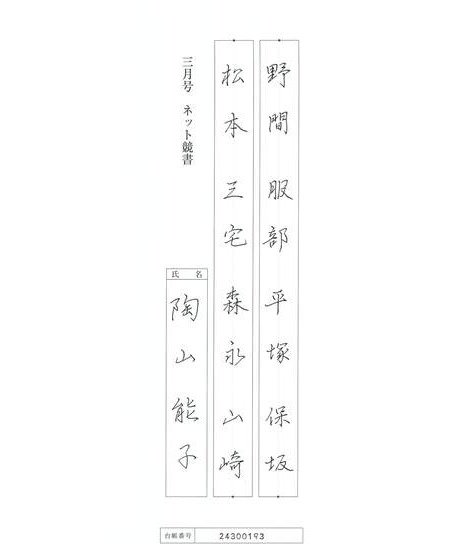 野間 服部 平塚 保坂
松本 三宅 森永 山崎
三月号 ネット競書
氏名
陶山能子
台帳番号 24300193